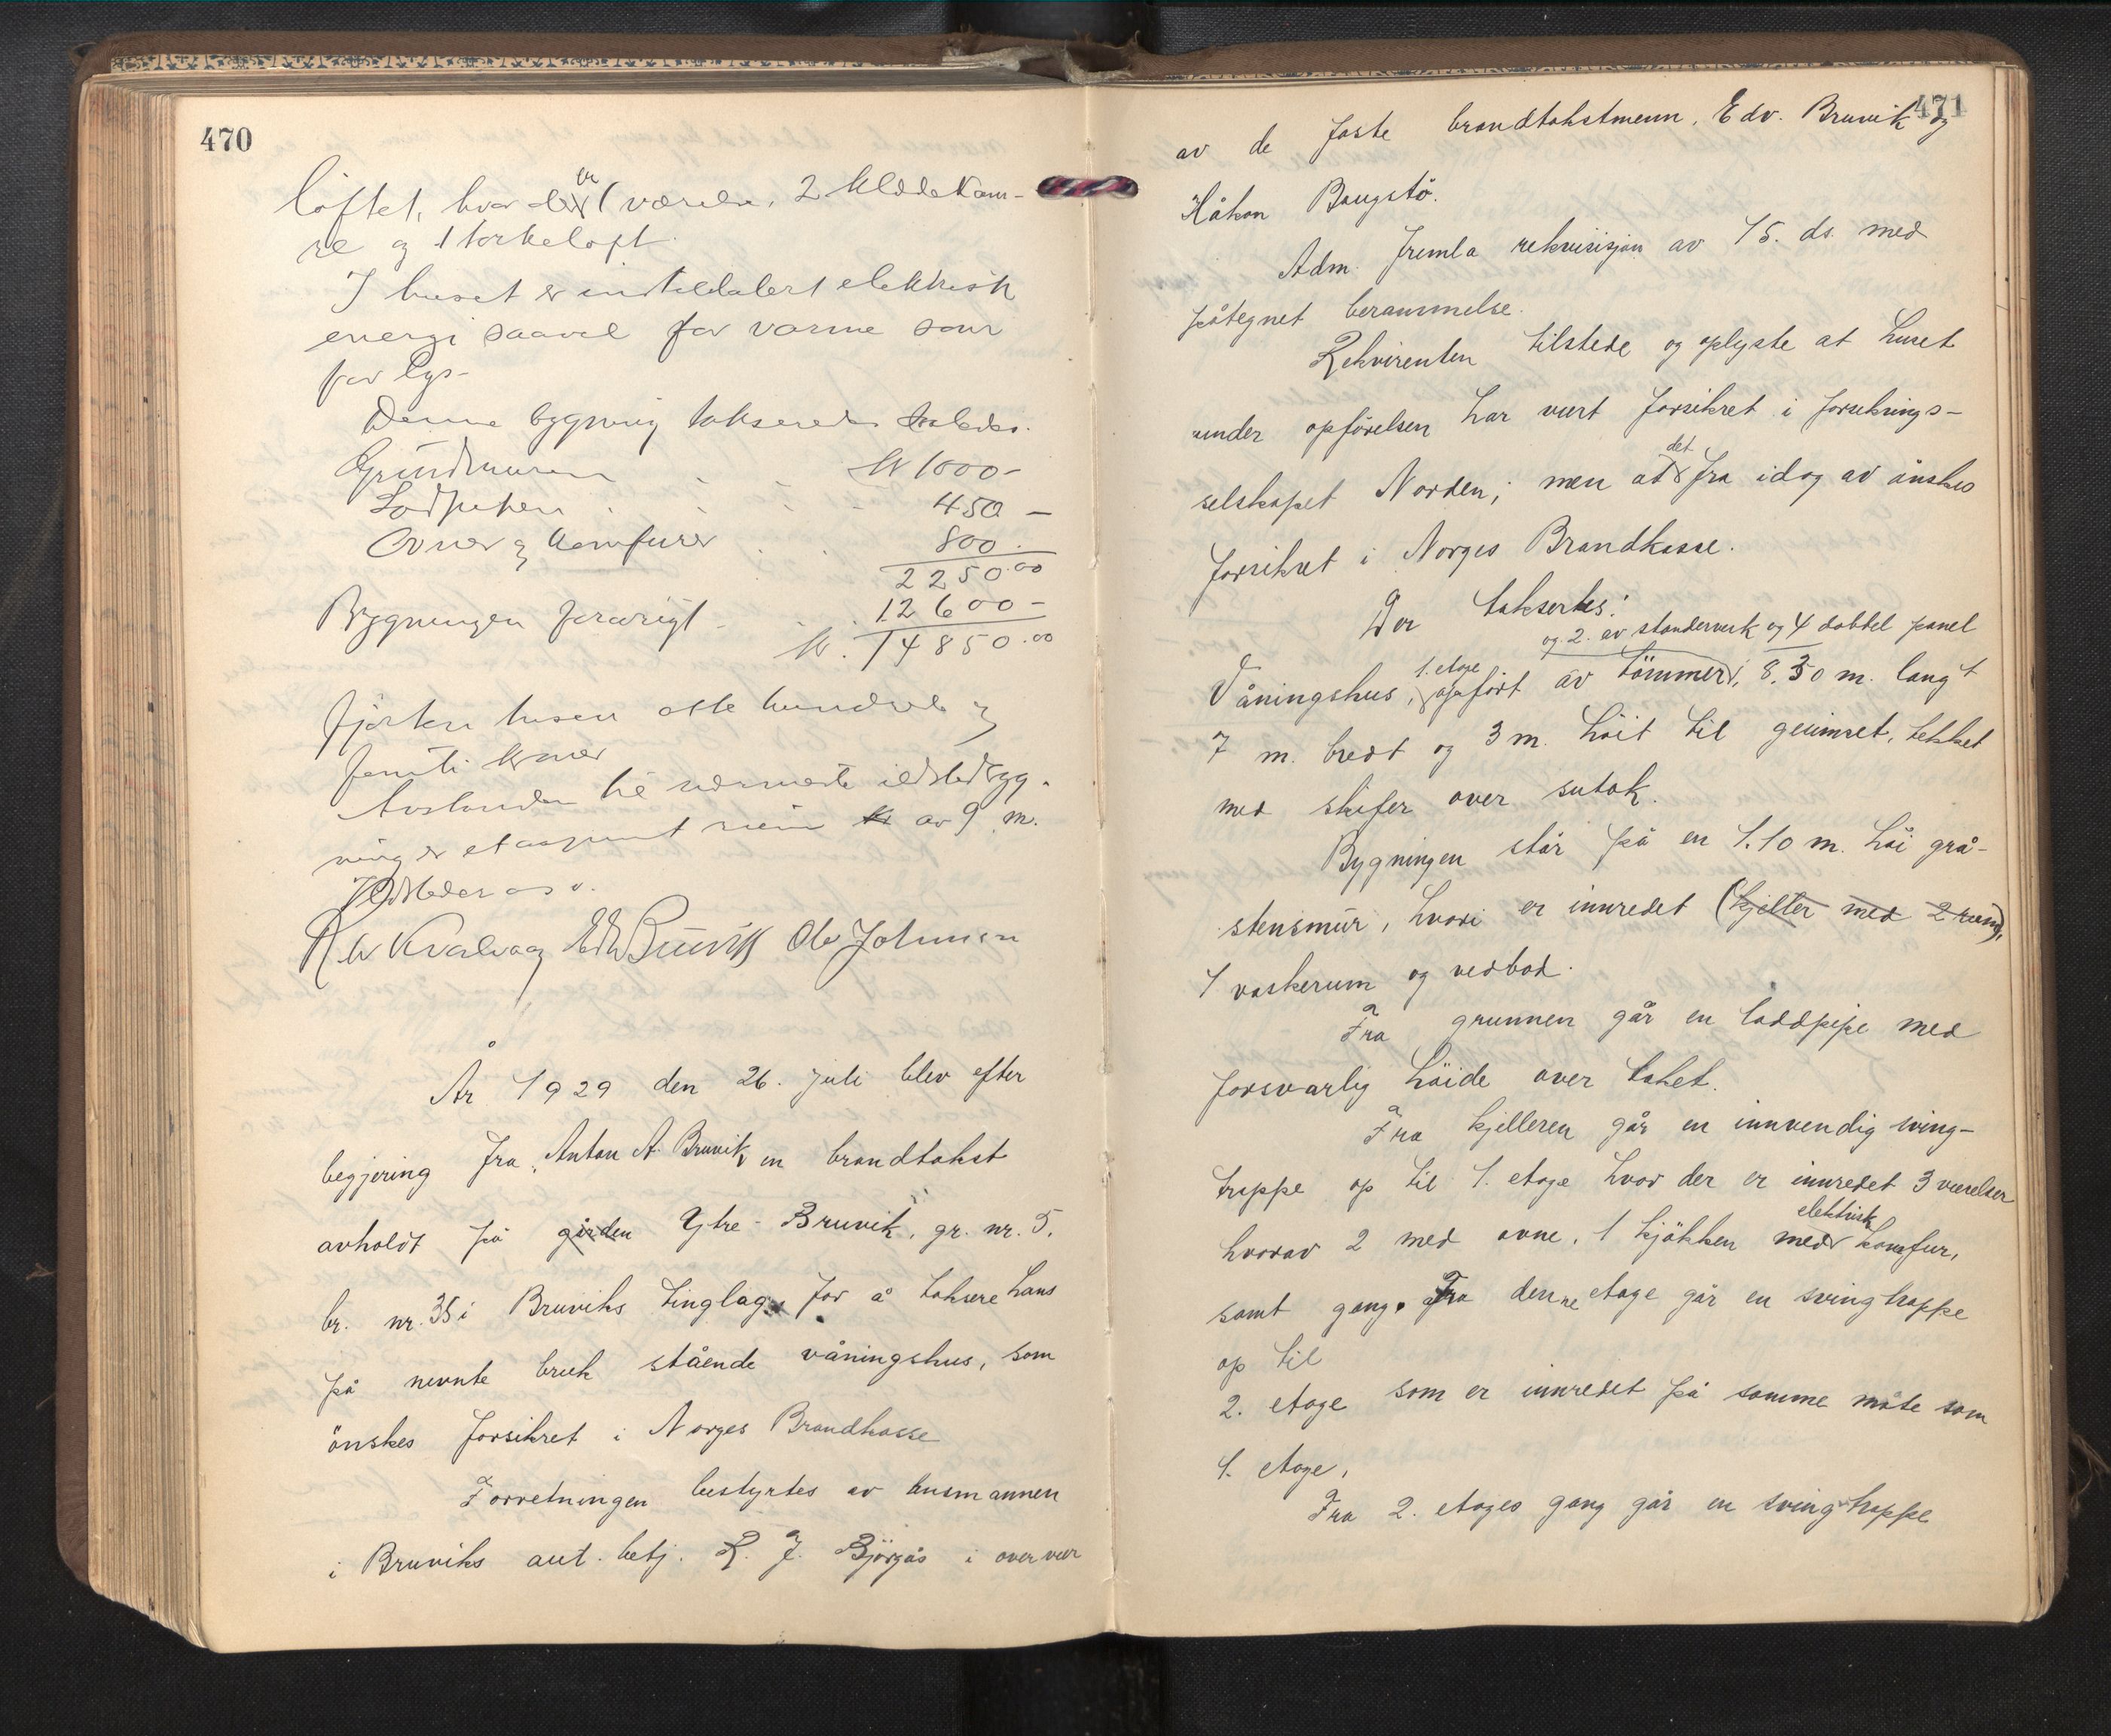 470
loftet, hvor der er 1 værelse, 2 klædekam-
re og 1 tørkeloft.
I huset er installert elektrisk
energi saavel for varme som
for lys-
Denne bygning takseredes saaledes.
Grundmuren Kr 1000-
Lodpipen 450-
Ovner og komfurer 800.
2250.00
Bygningen forøvrigt 12600-
kr. 14850.00
fjorten tusen otte hundrede og
femti kroner
Avstanden til nærmeste ildstedbyg-
ning er et aapent rum av 9 m.
Ildsteder os v.
Kvalvaag Edv Bruvik Ole Johnsen
År 1929 den 26. juli blev efter
begjering fra Anton A. Bruvik en brandtakst
avholdt på gården Ytre-Bruvik, gr. nr. 5.
br. nr. 35 i Bruviks tinglag, for å taksere hans
på nevnte bruk stående våningshus, som
önskes forsikret i Norges Brandkasse
Forretningen bestyrtes av lensmannen
i Bruviks aut. betj. R. J. Björgås i overvær
471
av de faste brandtakstmenn, Edv. Bruvik og
Håkon Baugstö.
Adm. fremla rekvisisjon av 15. ds. med
påtegnet berammelse.
Rekvirenten tilstede og oplyste at huset
under opførelsen har vært forsikret i forsikrings-
selskapet Norden; men at det fra idag av önskes
forsikret i Norges Brandkasse.
Der taksertes:
og 2. av standerverk og 4 dobbel panel
Våningshus, 1. etage opført av tömmer, 8,30 m. langt
7 m. bredt og 3 m. höit til gesimset, tekket
med skifer over sutak.
Bygningen står på en 1.10 m. höi grå-
stensmur, hvori er innredet (kjeller med 2 rum),
1 vaskerum og vedbod.
Fra grunnen går en loddpipe med
forsvarlig höide over taket.
Fra kjelleren går en innvendig sving-
trappe op til 1. etage hvor der er innredet 3 værelser
hvorav 2 med ovne, 1 kjökken med elektrisk komfur,
samt gang. Fra denne etage går en svingtrappe
op til
2. etage som er innredet på samme måte som
1. etage,
Fra 2. etages gang går en svingtrappe